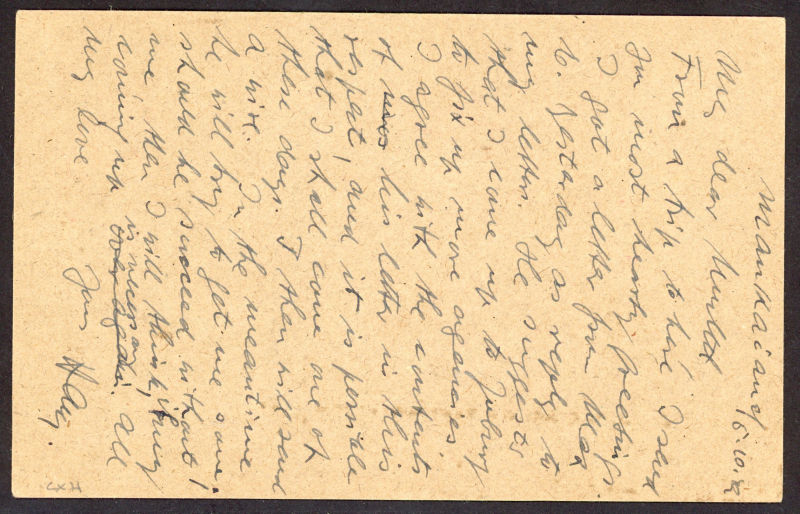 Mankaiana
16.10.
My dear
From a trip to here I send
You most hearty Greetings.
I got a letter from Max
B. yesterday as reply to
my letter. He suggests
that I come up to Joburg
to fix up more agencies
I agree with the contents
of his letter in this
respect, and it is possible
that I shall come one of
these days. I then will send
a wire. In the meantime
he will try to get me some,
should he succeed without
me then I will think, if my
coming up is necessary. All
my love Yours